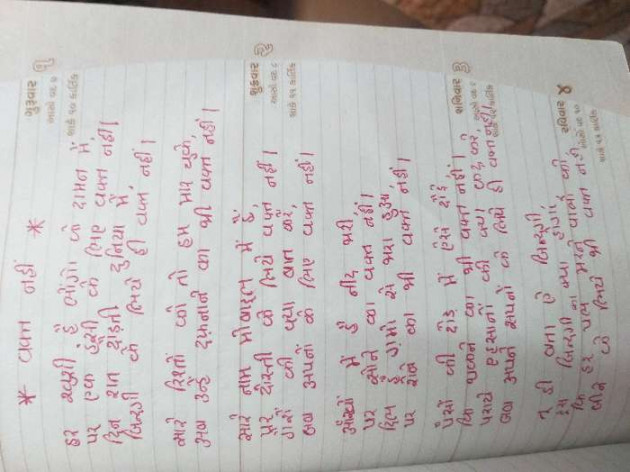 ગુરૂવાર ૧
* વક્ત નહીં *
હર ખુશી હૈ લોગોં કે દામન મેં,
પર એક હંસી કે લિએ વક્ત નહીં।
દિન રાત દૌડતી દુનિયા મેં,
જિન્દગી કે લિયે હી વક્ત નહીં।
સારે રિશ્તોં કો તો હમ માર ચુકે,
અબ ઉન્હેં દફનાને કા ભી વક્ત નહીં।
શુક્રવાર ૨
સારે નામ મોબાઇલ મેં હૈં,
પર દોસ્તી કે લિયે વક્ત નહીં।
ગૈરોં કી ક્યા બાત કરેં,
જબ અપનોં કે લિએ વક્ત નહીં।
આંખોં મેં હૈ નીંદ ભરી,
પર સોને કા વક્ત નહીં।
દિલ હૈ ગમોં સે ભરા હુઆ,
પર રોને કા ભી વક્ત નહીં।
શનિવાર ૩
પૈસોં કી દૌડ મેં ઐસે દૌડે,
કિ થકને કા ભી વક્ત નહીં।
પરાયે એહસાનોં કી ક્યા કદ્ર કરે,
જબ અપને સપનોં કે લિયે હી વક્ત નહીં।
રવિવાર ૪
તૂ હી બતા ઐ જિન્દગી,
ઇસ જિન્દગી કા ક્યા હોગા,
કિ હર પલ મરને વાલોં કો
જીને કે લિયે ભી વક્ત નહીં